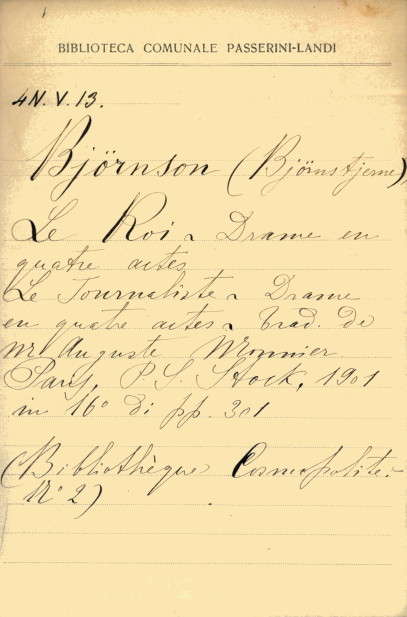 BIBLIOTECA COMUNALE PASSERINI-LANDI
4N. V. 13.
Björnson (Björnstjerne)
Le Roi - Drame en
quatre actes
Le Journaliste - Drame
en quatre actes - Trad. de
Mr Auguste Monnier
Paris, P. S. Stock, 1901
in 16° di pp. 301
(Bibliothèque Cosmopolite -
N° 2)